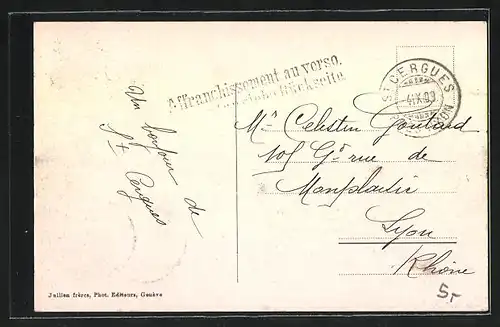 Affranchissement au verso.
Rückseite
ST CERGUES
4.IX.09
Un bonjour de
St Cergues
Mr Celestin
101 Gde rue de
Monplaisir
Lyon
Rhône
5.-
Jullien frères, Phot. Editeurs, Genève